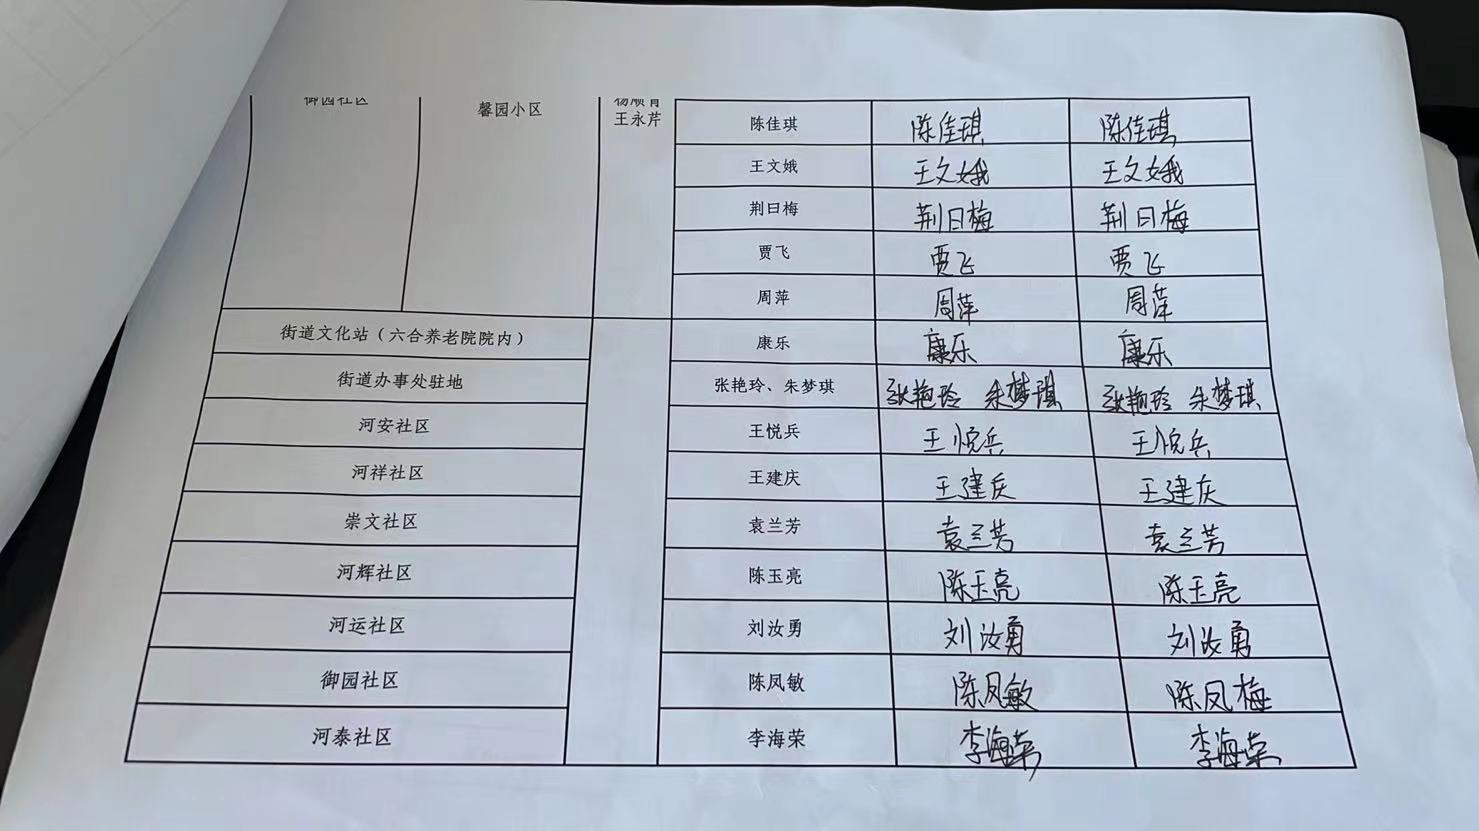 御园社区 馨园小区 杨顺青 陈佳琪 陈佳琪 陈佳琪
王永芹
王文娥 王文娥 王文娥
荆日梅 荆日梅 荆日梅
贾飞 贾飞 贾飞
周萍 周萍 周萍
街道文化站（六合养老院院内） 康乐 康乐 康乐
街道办事处驻地 张艳玲、朱梦琪 张艳玲 朱梦琪 张艳玲 朱梦琪
河安社区 王悦兵 王悦兵 王悦兵
河祥社区 王建庆 王建庆 王建庆
崇文社区 袁兰芳 袁兰芳 袁兰芳
河辉社区 陈玉亮 陈玉亮 陈玉亮
河运社区 刘汝勇 刘汝勇 刘汝勇
御园社区 陈凤敏 陈凤敏 陈凤梅
河泰社区 李海荣 李海荣 李海荣